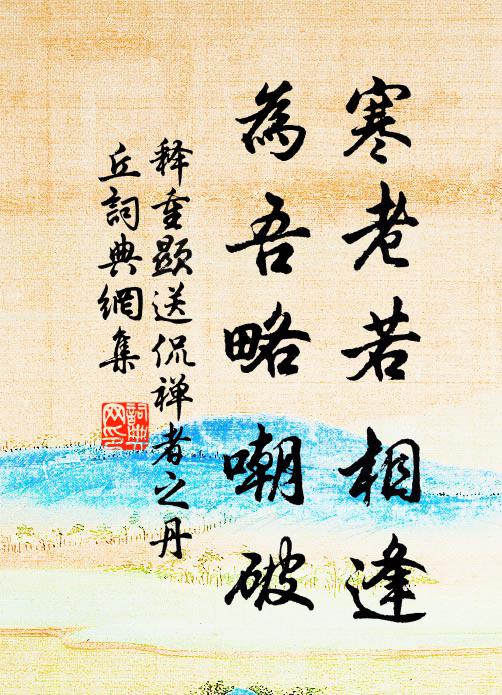 寒老若相逢
為吾略嘲破
释重顯送侃禅者之丹
丘詞典網集
詞典
网印